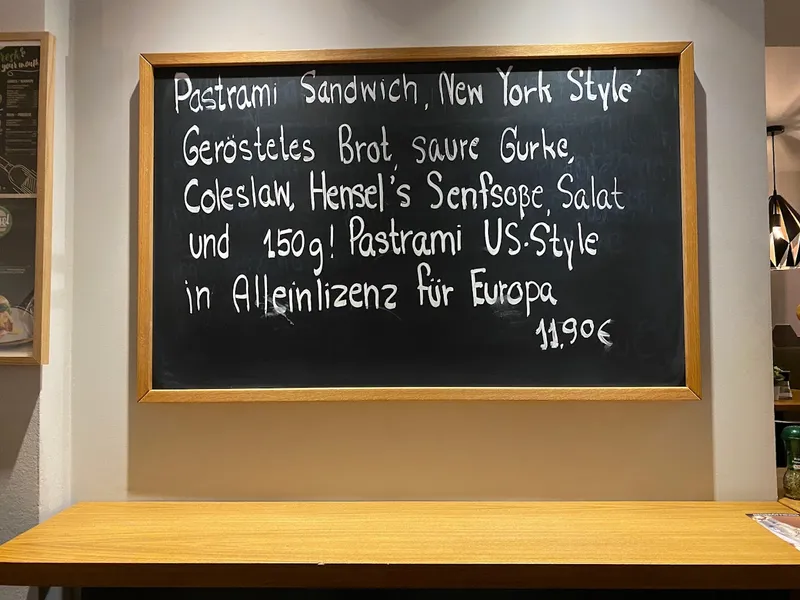 Pastrami Sandwich, New York Style'
Geröstetes Brot, saure Gurke,
Coleslaw, Hensel's Senfsoße, Salat
und 150g! Pastrami US-Style
in Alleinlizenz für Europa
11,90€